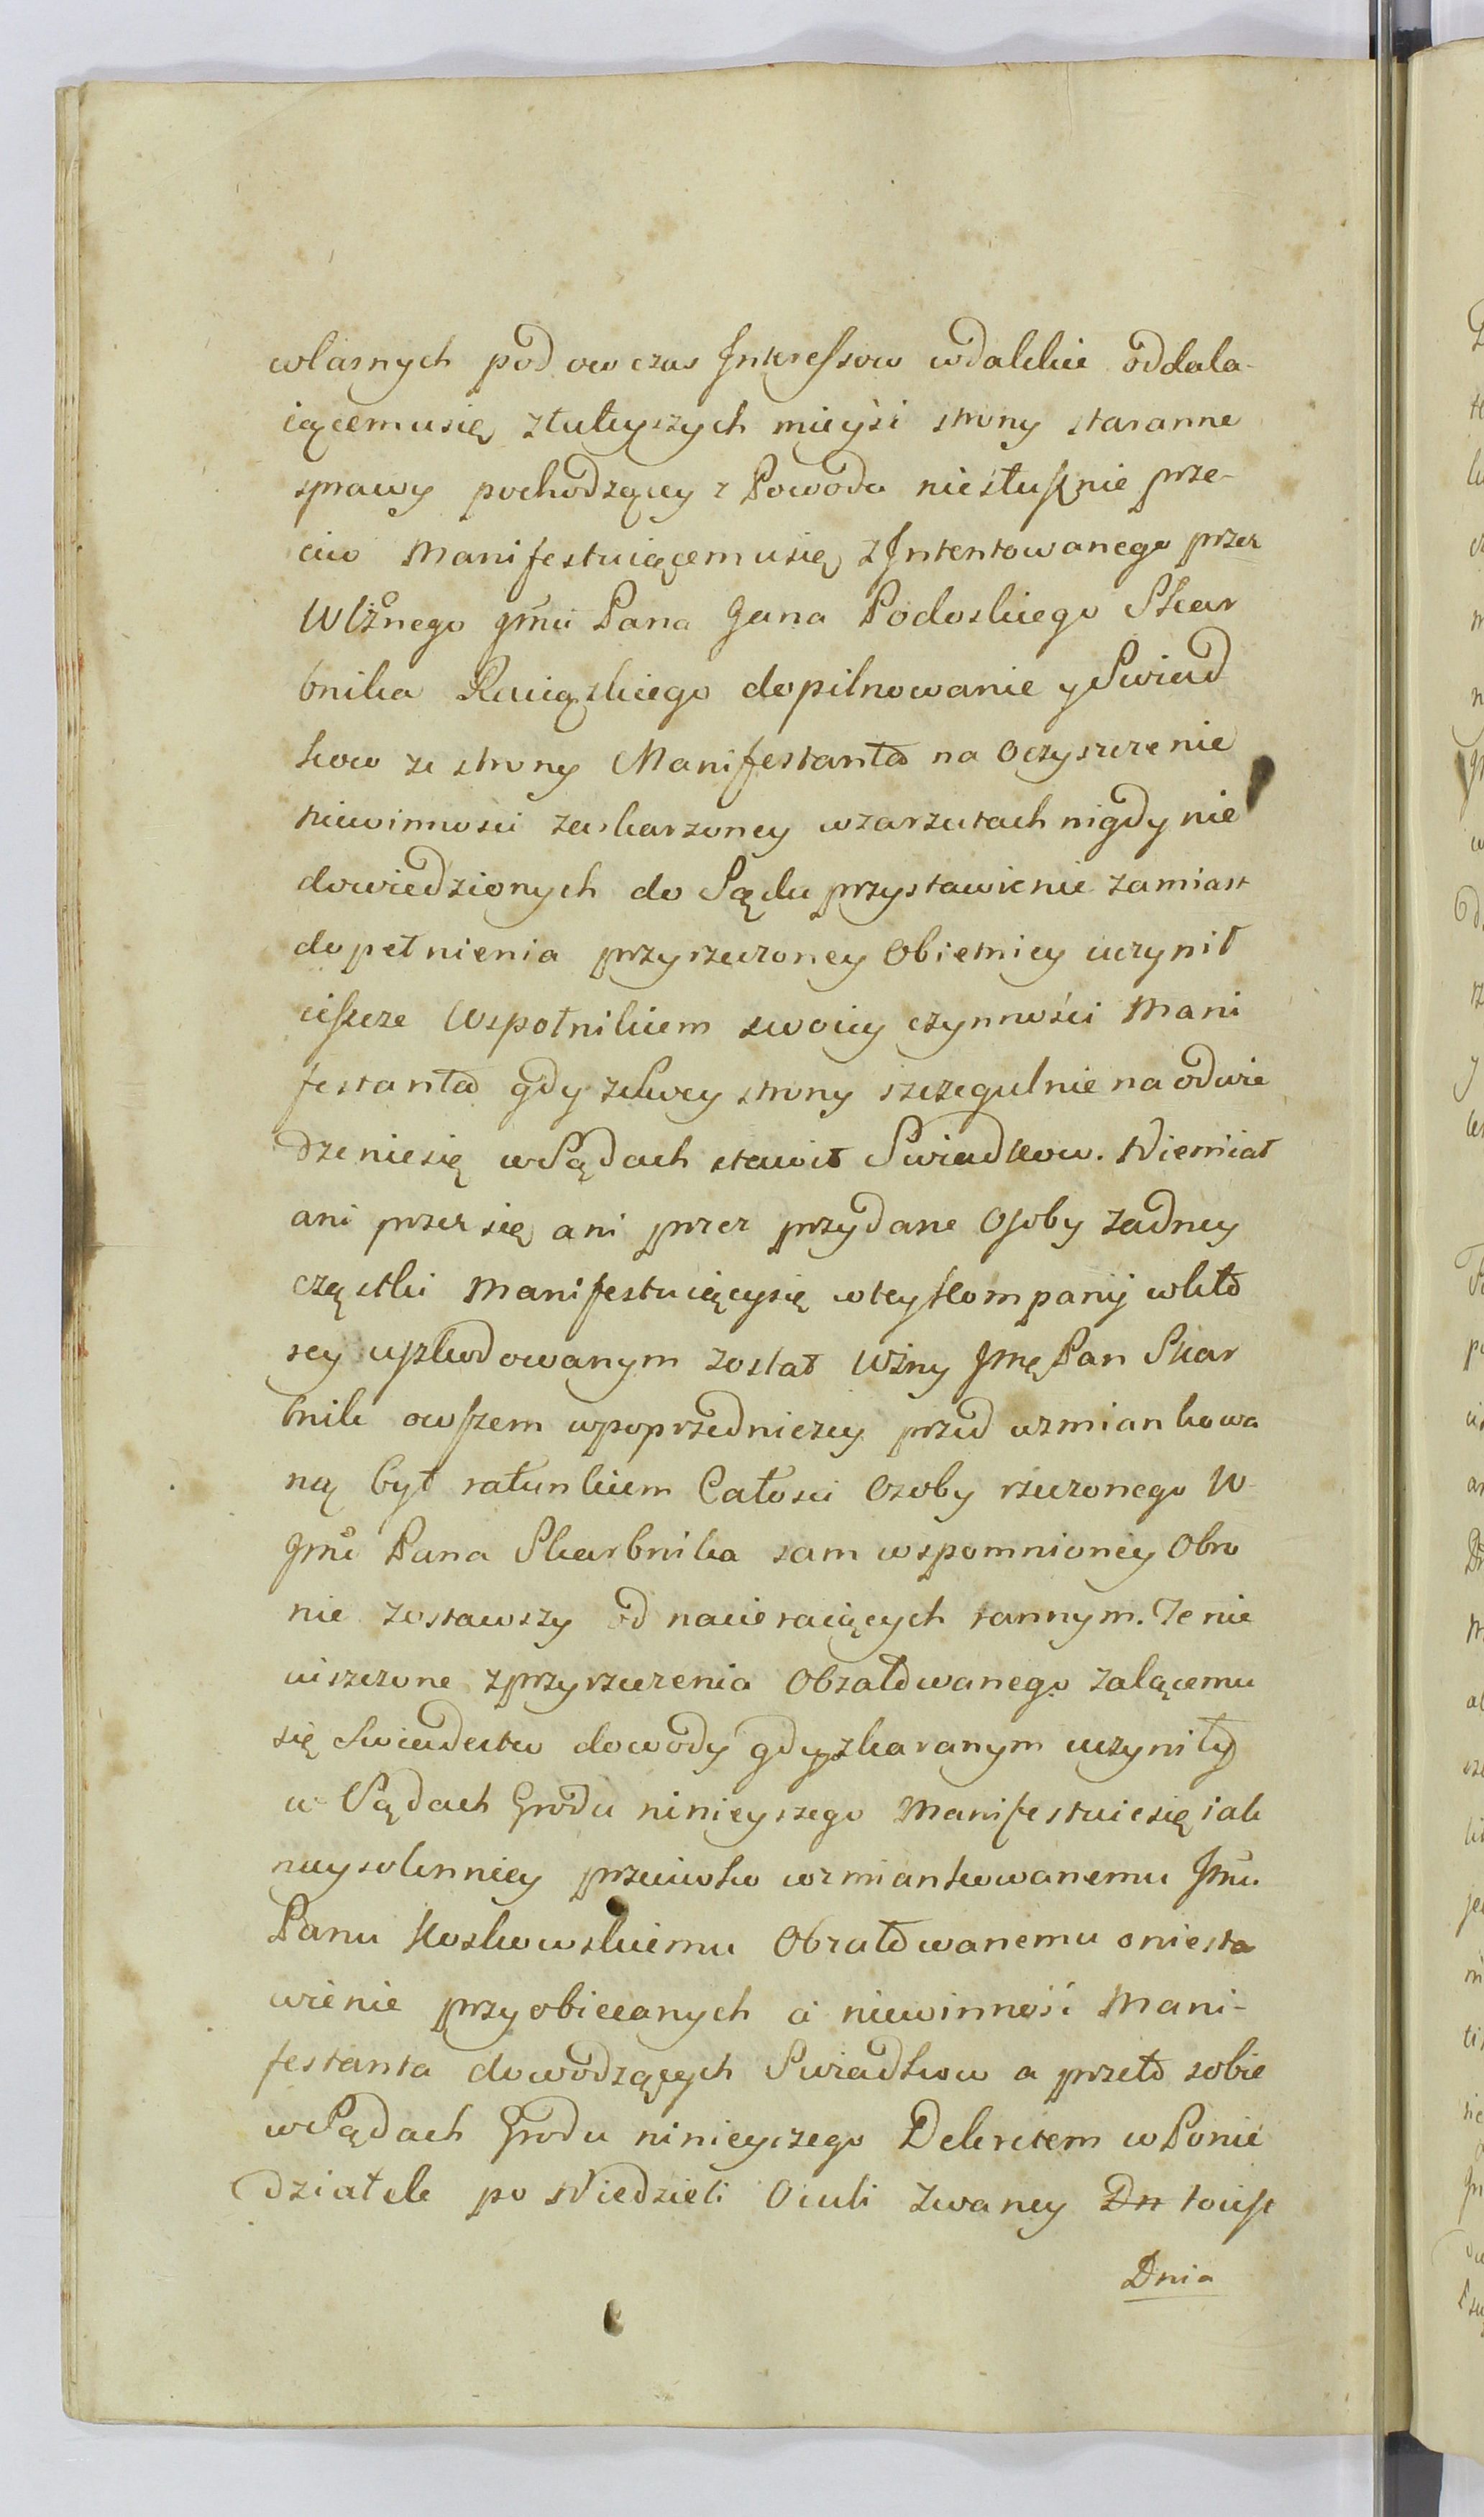 własnych pod ow czas Interessow wdalekie oddala-
iącemusię ztuteyszych mieysc strony staranne
sprawy pochodzącey z Powodu niesłusznie prze-
ciw Manifestuiącemusię zIntentowanego przez
Wlżnego Jmći Pana Jana Podoskiego Skar
bnika Raciązkiego dopilnowanie y Swiad
kow ze strony Manifestanta na oczyszczenie
niewinnosci zaskarzoney wzarzutach nigdy nie
dowiedzionych do Sądu przystawienie zamiast
dopełnienia przyrzeczoney Obietnicy uczynił
ieszcze Wspołnikiem swoiey czynności Mani
festanta gdy zeswey strony szczegulnie na odwie
dzeniesię wSądach stawił Swiadkow. Niemiał
ani przez się ani przez przydane Osoby zadney
cząstki Manifestuiącysię wtey Kompanij wkto
rey uszkodowanym został Wżny Jmę Pan Skar
bnik owszem wpoprzedniczey przed wzmiankowa
ną był ratunkiem Całosci Osoby rzeczonego W
Jmći Pana Skarbnika sam wspomnioney Obro
nie zostawszy od nacieraiących rannym. Ze nie
uiszczone zprzyrzeczenia Obzałowanego zalącemu
się Swiadectw dowody gdy zkaranym uczyniły
w Sądach Grodu ninieyszego Manifestuiesię iak
naysolenniey przeciwko wzmiankowanemu Jmći
Panu Koskowskiemu Obzałowanemu oniesta
wienie przyobiecanych a niewinność Mani-
festanta dowodzących Swiadkow a przeto sobie
wSądach Grodu ninieyszego Dekretem w Ponie
działek po Niedzieli Oculi zwaney Dn toiest
Dnia